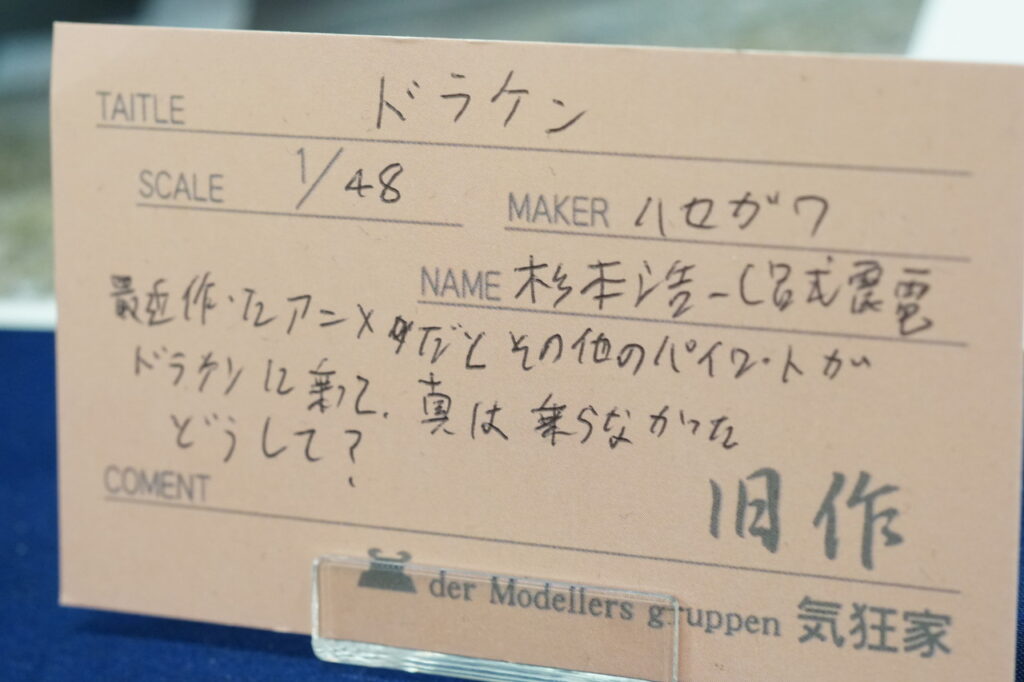 TAITLE ドラケン
SCALE 1/48
MAKER ハセガワ
NAME 杉本浩一
最近作ったアニメ だとその他のパイロットが
ドラケンに乗って、真は乗らなかった
どうして?
COMENT
旧作
der Modellers gruppen 気狂家